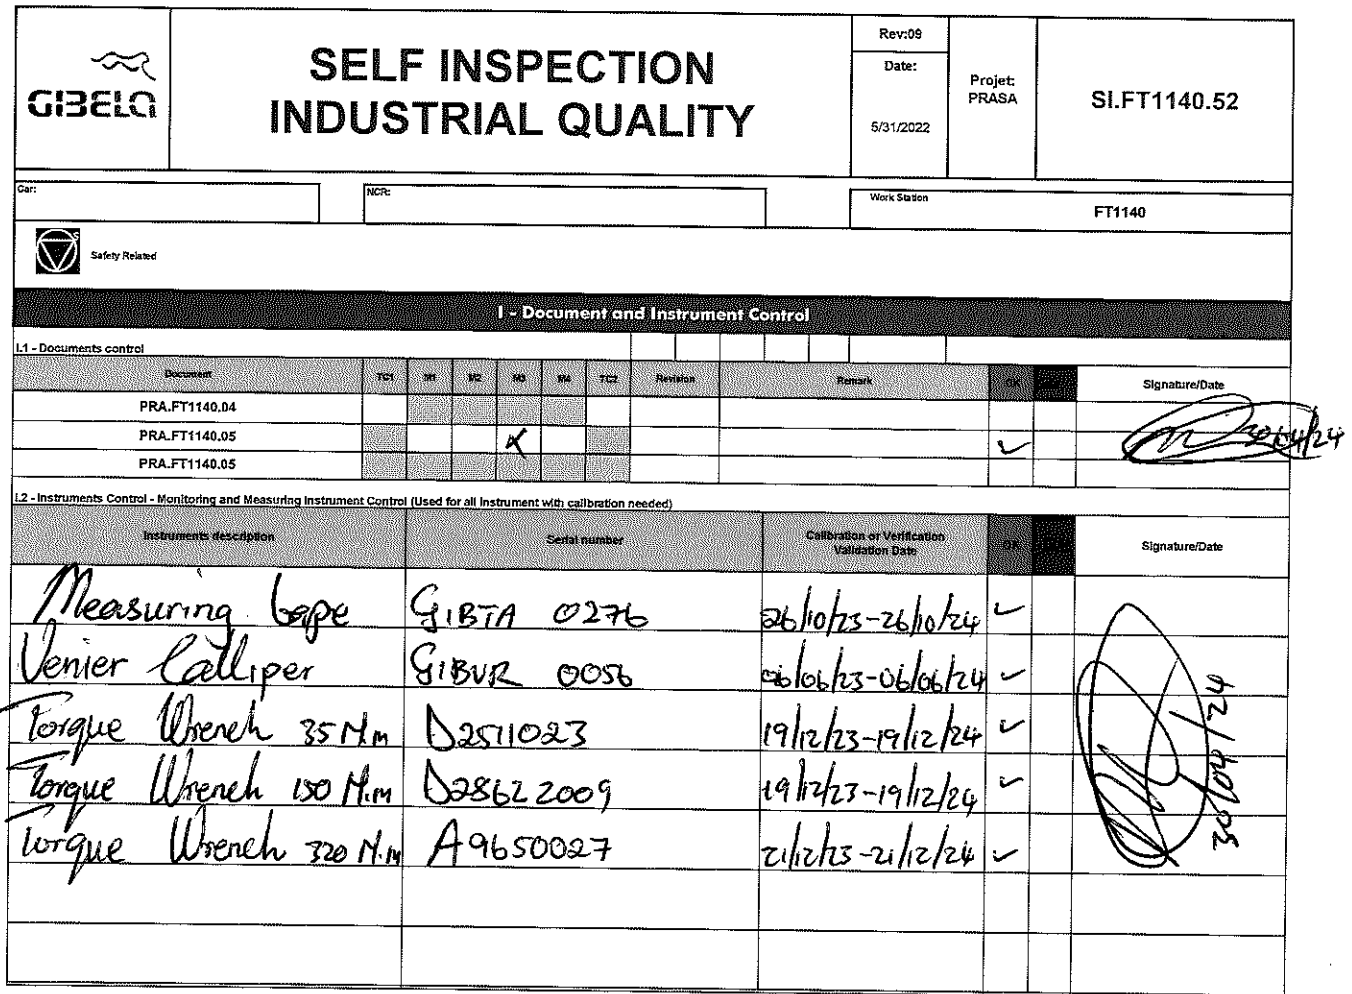 GIBELA
SELF INSPECTION
INDUSTRIAL QUALITY
Rev:09
Date:
5/31/2022
Projet:
PRASA
SI.FT1140.52
Car:
NCR:
Work Station
FT1140
Safety Related
I - Document and Instrument Control
I.1 - Documents control
Document TC1 M1 M2 M3 M4 TC2 Revision Remark OK Signature/Date
PRA.FT1140.04
PRA.FT1140.05 X ✓ 30/04/24
PRA.FT1140.05
I.2 - Instruments Control - Monitoring and Measuring Instrument Control (Used for all Instrument with calibration needed)
Instruments description Serial number Calibration or Verification Validation Date OK Signature/Date
Measuring tape GIBTA 0276 26/10/23-26/10/24 ✓
Venier Calliper GIBVR 0056 06/06/23-06/06/24 ✓
Torque Wrench 35 N.m D2511023 19/12/23-19/12/24 ✓
Torque Wrench 150 N.m D28622009 19/12/23-19/12/24 ✓
Torque Wrench 320 N.m A9650027 21/12/23-21/12/24 ✓
30/04/24